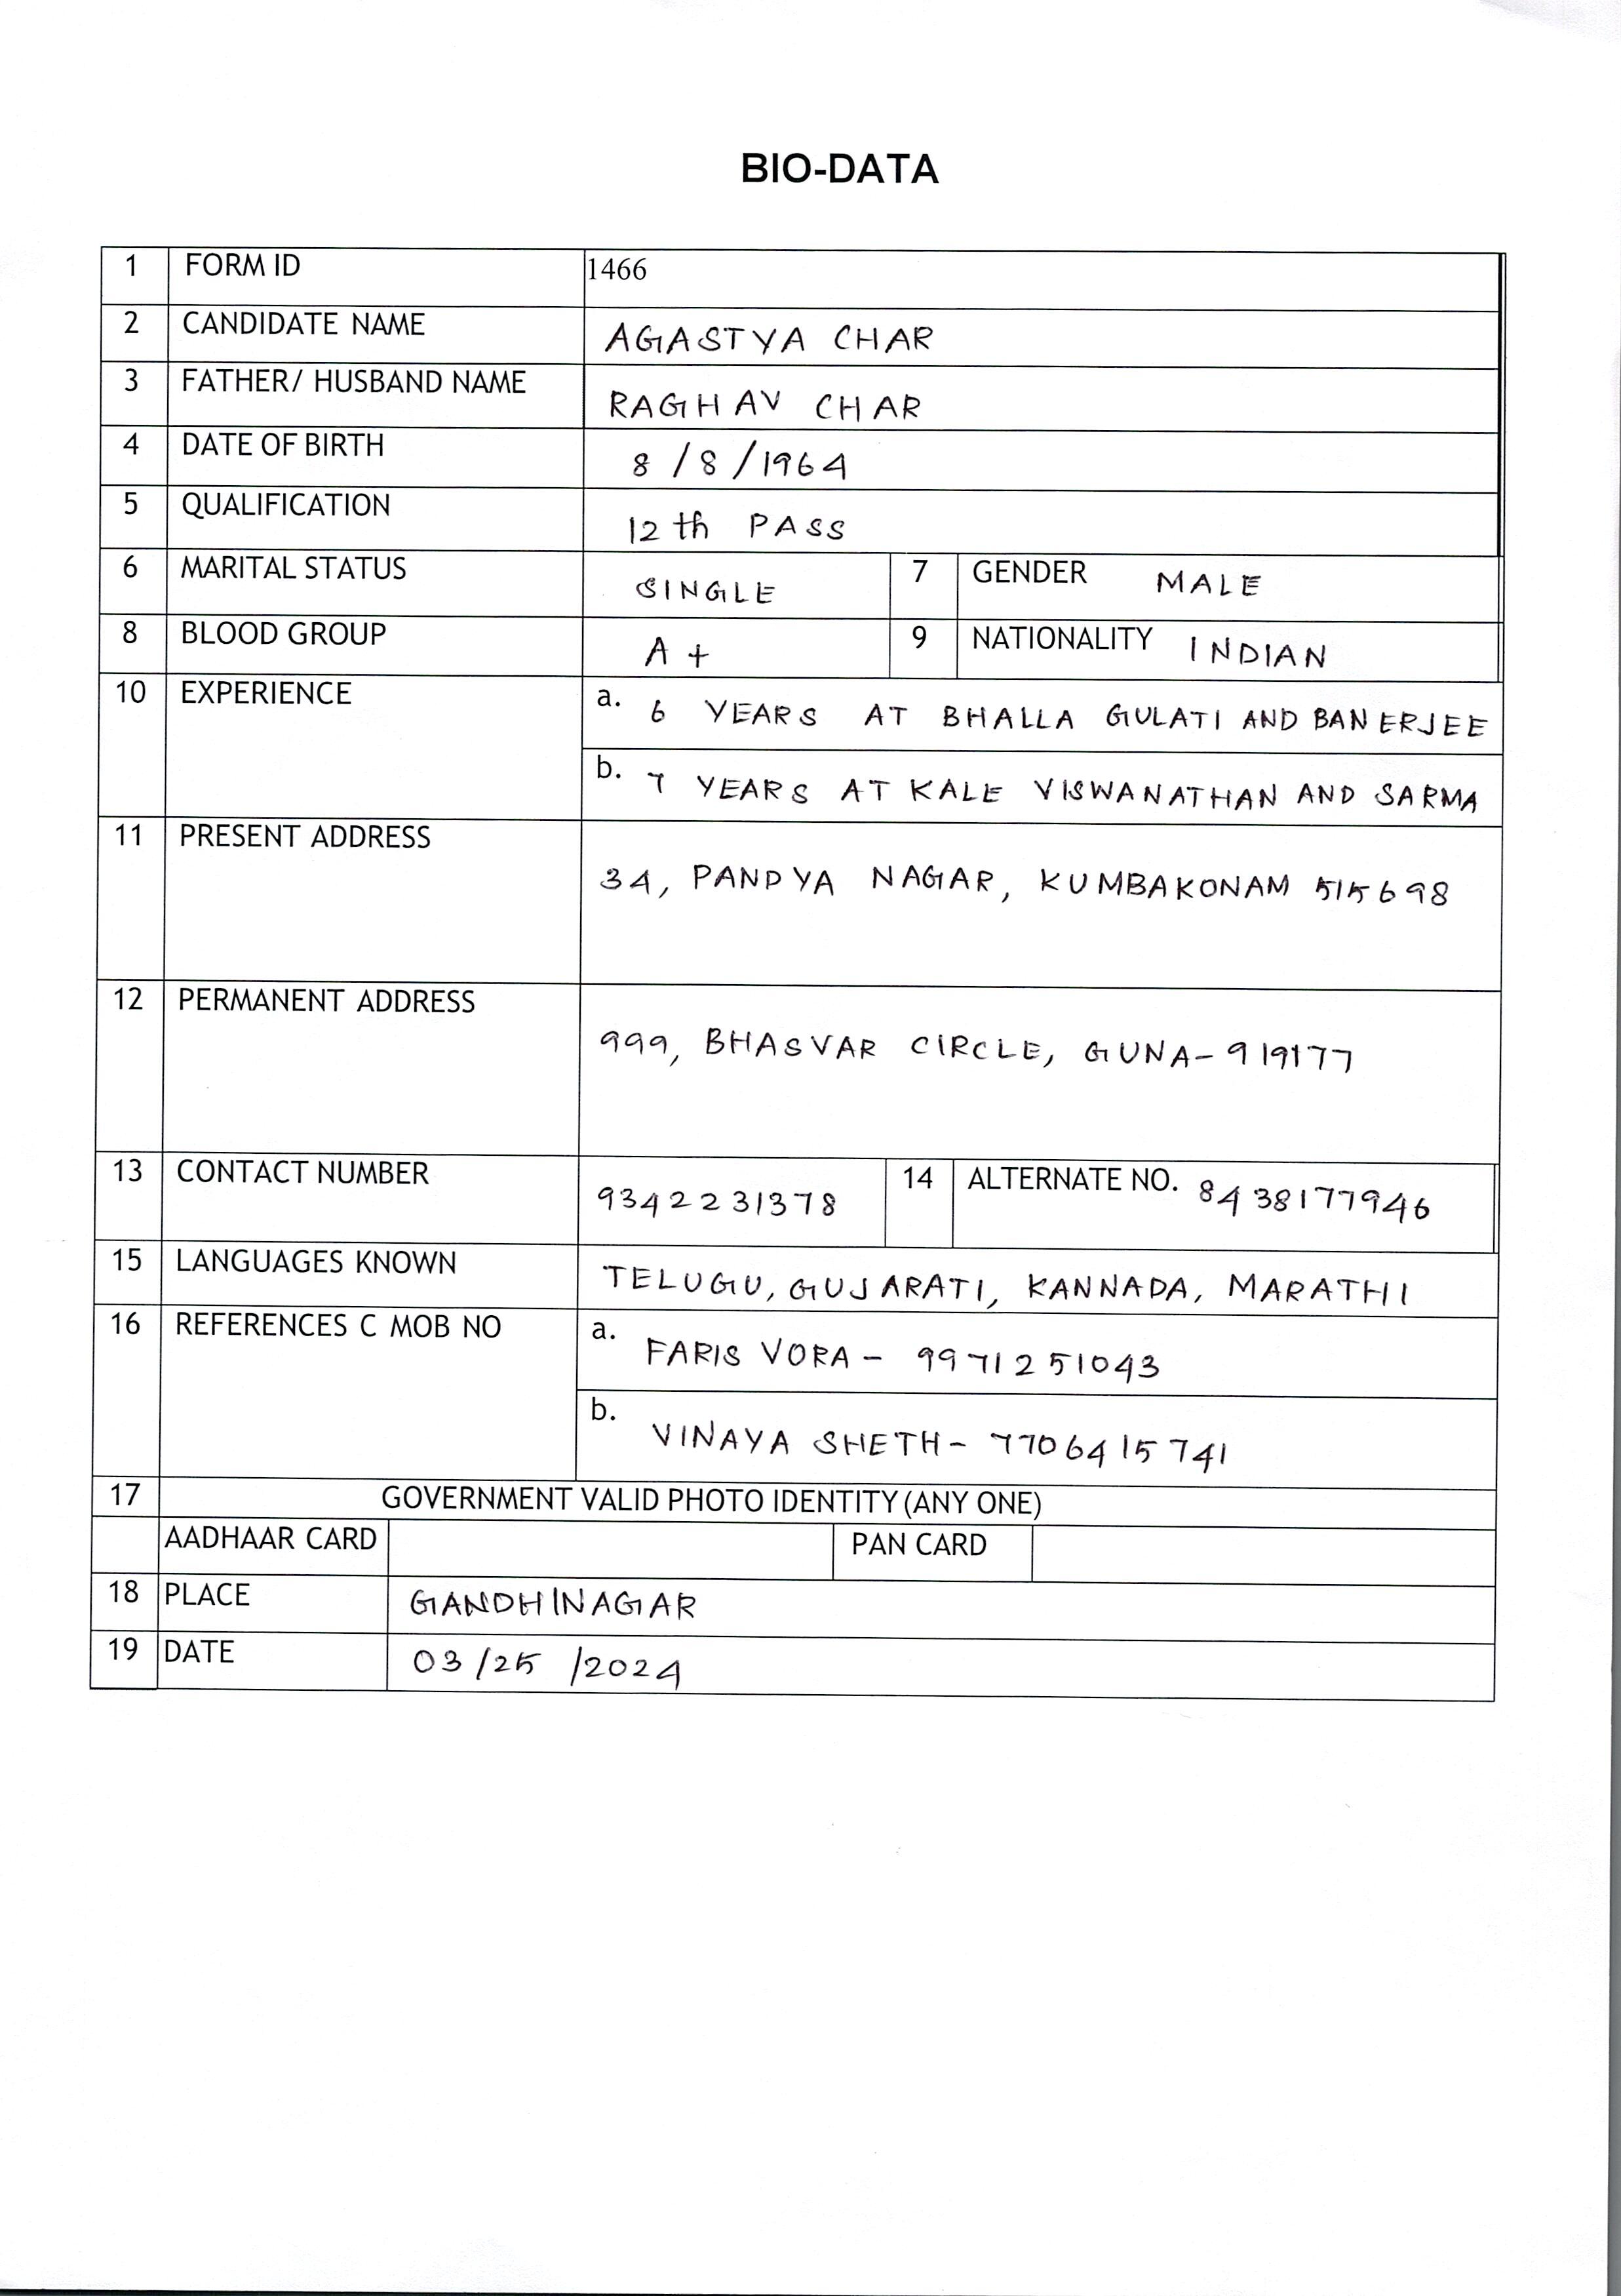 BIO-DATA
1 FORM ID 1466
2 CANDIDATE NAME AGASTYA CHAR
3 FATHER/ HUSBAND NAME RAGHAV CHAR
4 DATE OF BIRTH 8 /8 /1964
5 QUALIFICATION 12 th PASS
6 MARITAL STATUS SINGLE 7 GENDER MALE
8 BLOOD GROUP A + 9 NATIONALITY INDIAN
10 EXPERIENCE a. 6 YEARS AT BHALLA GULATI AND BANERJEE
b. 7 YEARS AT KALE VISWANATHAN AND SARMA
11 PRESENT ADDRESS 34, PANDYA NAGAR, KUMBAKONAM 515698
12 PERMANENT ADDRESS 999, BHASVAR CIRCLE, GUNA-919177
13 CONTACT NUMBER 9342231378 14 ALTERNATE NO. 8438177946
15 LANGUAGES KNOWN TELUGU, GUJARATI, KANNADA, MARATHI
16 REFERENCES C MOB NO a. FARIS VORA - 9971251043
b. VINAYA SHETH - 7706415741
17 GOVERNMENT VALID PHOTO IDENTITY (ANY ONE)
AADHAAR CARD PAN CARD
18 PLACE GANDHINAGAR
19 DATE 03/25/2024